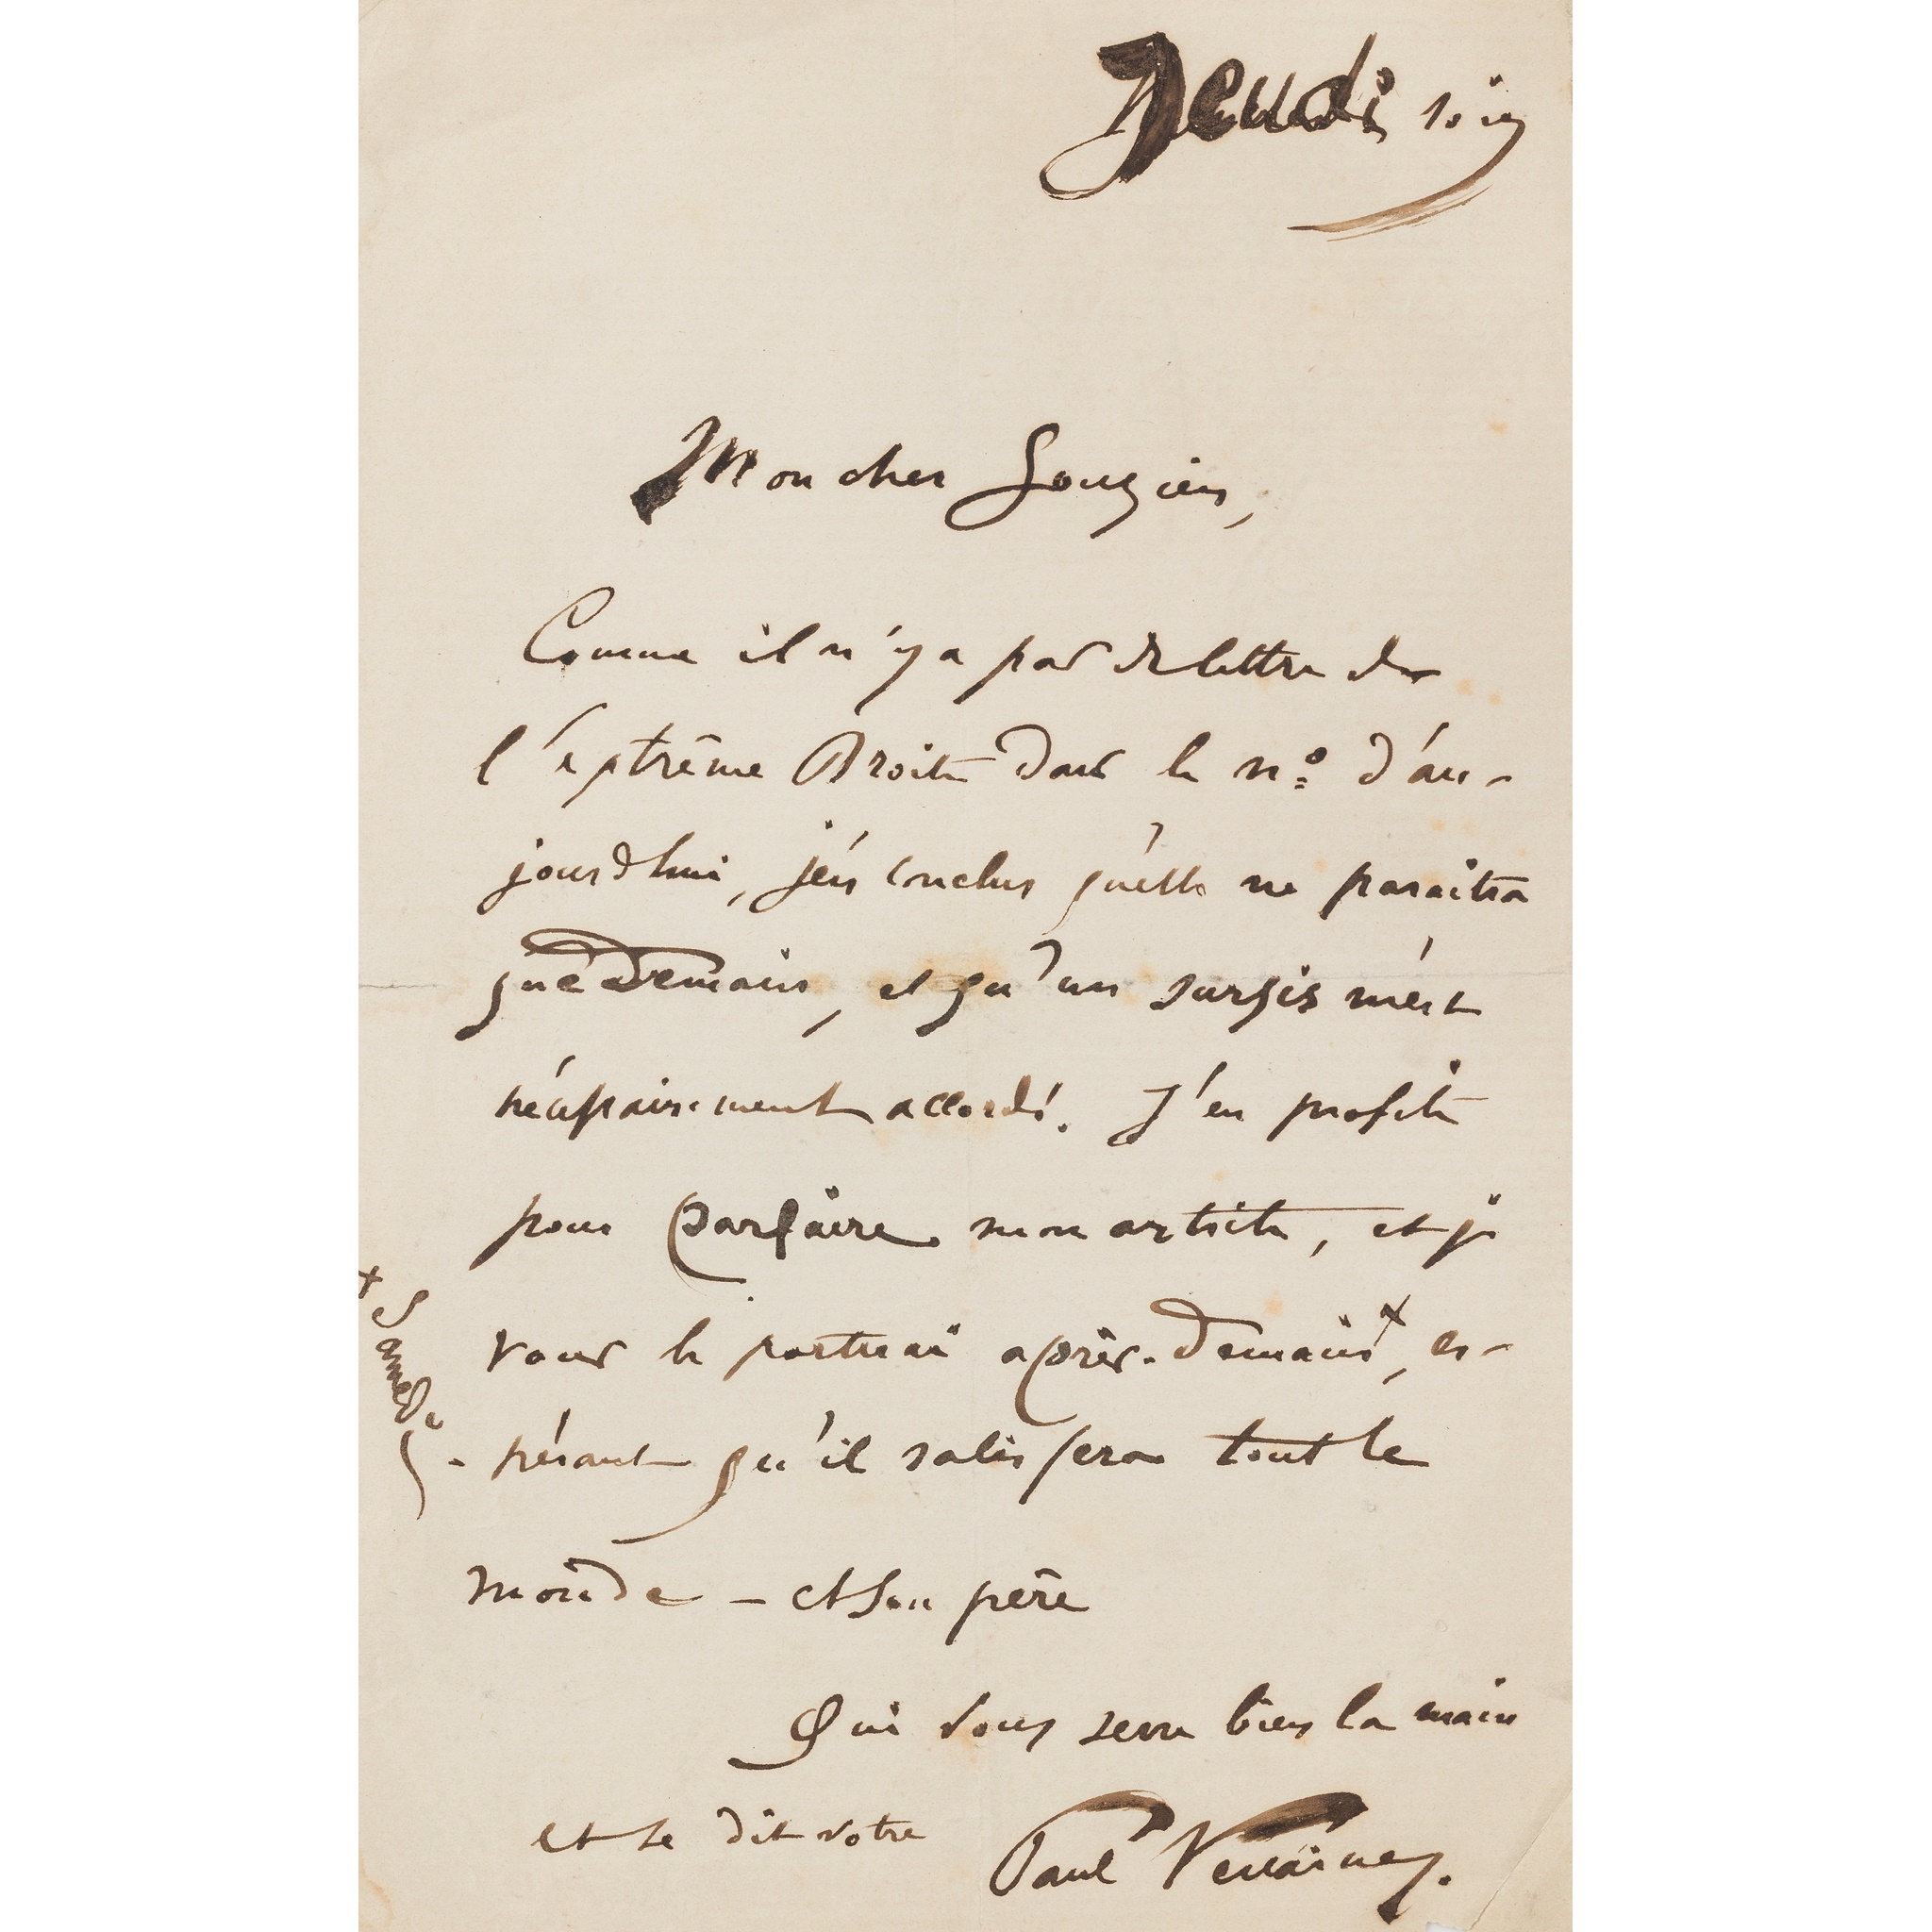 Jeudi soir
Mon cher Gouzien,
Comme il n'y a pas de lettre de
l'extrême Droite dans le n° d'au-
jourd'hui, j'en conclus qu'elle ne paraîtra
que demain, et qu'un sursis m'est
nécessairement accordé. J'en profite
pour parfaire mon article, et je
vous le porterai après-demain x, es-
- pérant qu'il satisfera tout le
monde — et son père
Qui vous serre bien la main
et se dit votre
Paul Verlaine.
x Samedi